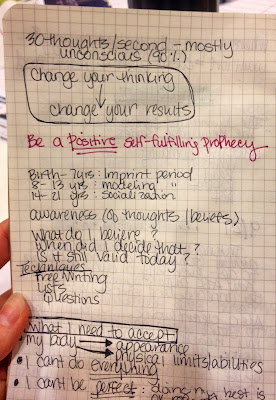 30 thoughts/second - mostly
unconscious (90%)
Change your thinking
↓
change your results
Be a positive self-fulfilling prophecy
Birth - 7yrs: Imprint period
8 - 13 yrs: modeling "
14 - 21 yrs: socialization
awareness (of thoughts/beliefs)
What do I believe?
When did I decide that?
Is it still valid today?
Techniques
Free Writing
Lists
Questions
What I need to accept
• my body → appearance
→ physical limits/abilities
• I can't do everything
• I can't be perfect: doing my best is